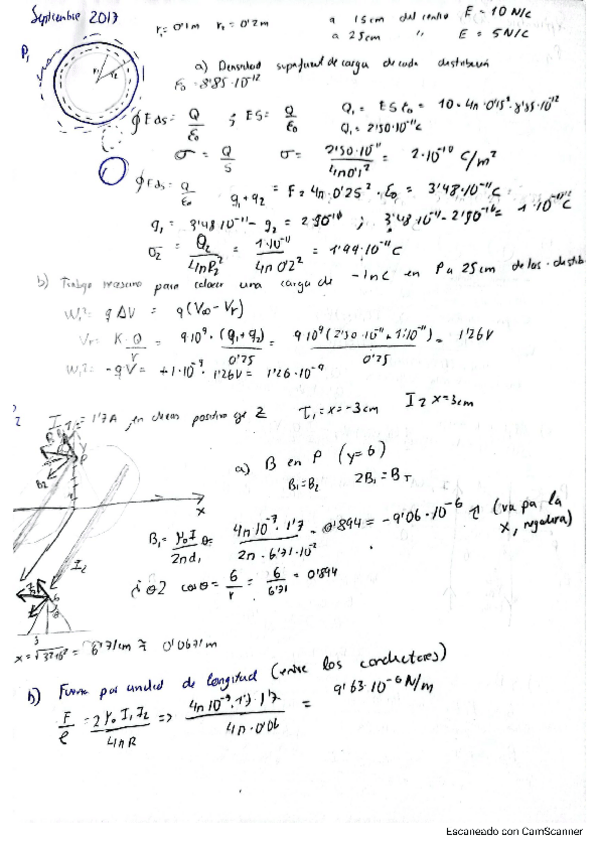 Septiembre 2017
r₁=0'1m r₂=0'2m a 15cm del centro E=10 N/C
a 25cm " E=5N/C
P₁
a) Densidad superficial de carga de cada distribución
ε₀=8'85·10⁻¹²
∮E ds = Q/ε₀ ; ES = Q/ε₀ Q₁ = ESε₀ = 10·4π·0'15²·8'85·10⁻¹²
Q₁ = 2'50·10⁻¹¹C
σ = Q/S σ = 2'50·10⁻¹¹/4π0'1² = 2·10⁻¹⁰ C/m²
∮E ds = Q/ε₀ q₁+q₂ = E·4π·0'25²·ε₀ = 3'48·10⁻¹¹C
σ₂ = Q₂/4πR₂² = 1·10⁻¹¹/4π0'2² = 1'99·10⁻¹¹C
b) Trabajo necesario para colocar una carga de -1nC en P a 25cm de las distrib
W₁₂ = q ΔV = q(V∞ - Vr)
Vr = K·Q/r = 9·10⁹·(q₁+q₂)/0'25 = 9·10⁹(2'50·10⁻¹¹+1·10⁻¹¹)/0'25 = 1'26V
W₁₂ = -qV = +1·10⁻⁹·1'26V = 1'26·10⁻⁹
2 I₁ = 1'7A, en direc positivo eje Z I₁=x=-3cm I₂ x=3cm
a) B en P (y=6)
B₁=B₂ 2B₁=B_T
B₂
P
x
I₂
B₁ = μ₀I/2πd₁ = 4π·10⁻⁷·1'7/2π·6'71·10⁻² · 0'894 = -9'06·10⁻⁶ î (va por la x, negativa)
¿θ? cosθ = 6/r = 6/6'71 = 0'894
x = √3²+6² = 6'71cm = 0'0671m
b) Fuerza por unidad de longitud (entre los conductores)
F/l = 2μ₀I₁I₂/4πR => 4π10⁻⁷·1'7·1'7/4π·0'06 = 9'63·10⁻⁶ N/m
Escaneado con CamScanner